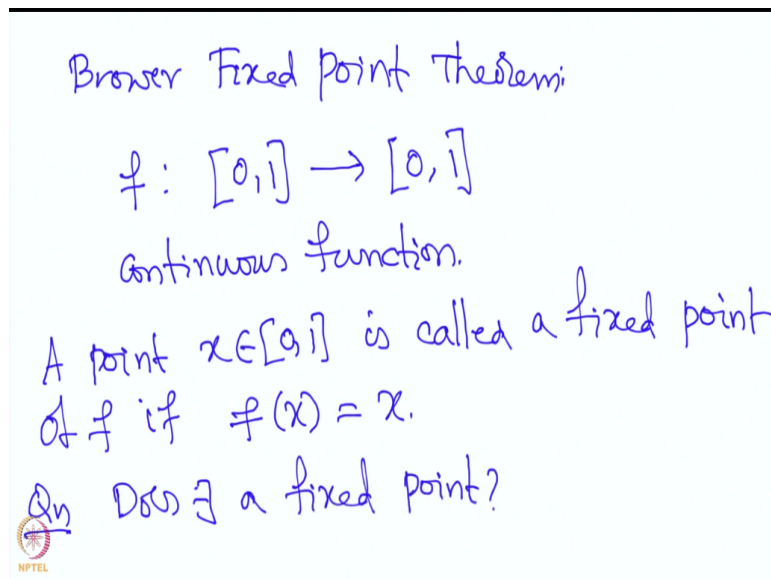 Brower Fixed Point Theorem:
f: [0,1] → [0,1]
Continuous function.
A point x∈[0,1] is called a fixed point
of f if f(x) = x.
Qn Does ∃ a fixed point?
NPTEL